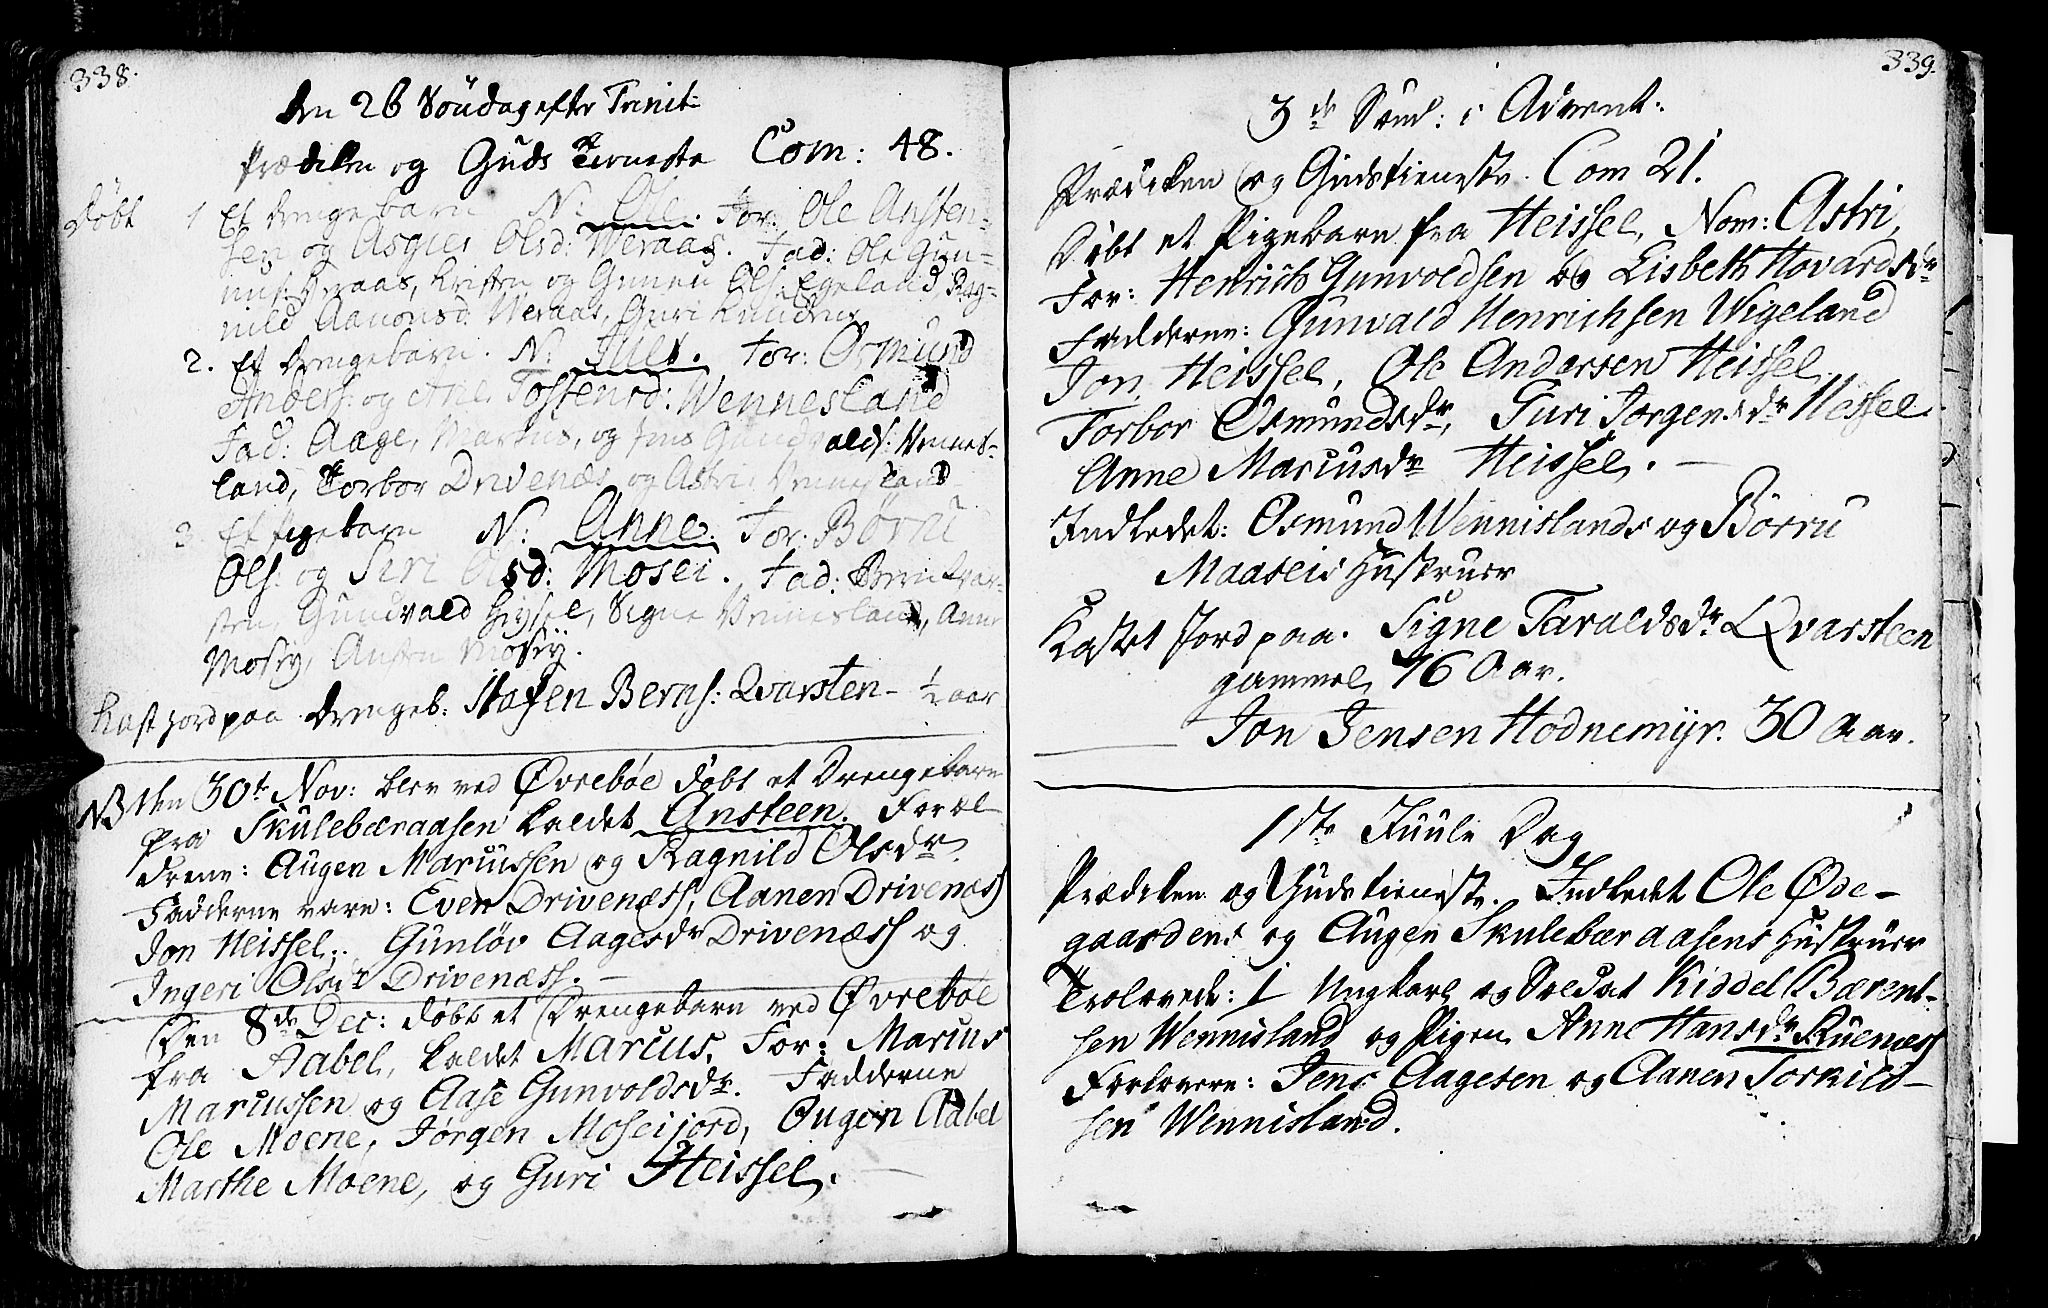 338.
Den 26 Söndag efter Trinit:
Prædiken og Guds Tieneste Com: 48.
Döbt 1 Et drengebarn N: Ole. For: Ole Ansten-
sen og Asgier Olsd: Weraas. Fad: Ole Gun-
Weraas, Kristen og Gunnu Ols: Egeland Rag-
nild Aanonsd: Weraas, Guri
2. Et drengebarn. N: For: Osmund
Anders: og Tostensd: Wennesland
Fad: Aage, Marcus, og Jens Gundvalds: Vennes-
land, Torbor Drivenæs og Astri Vennesland
3. Et Pigebarn N: Anne. For: Børru
Ols: og Siri Olsd: Mosei. Fad: Bernt Qvar-
sten, Gundvald Heysel, Signe Vennesland, Anne
Mosey, Austen Mosey.
Kast jord paa drengeb: Stafen Berns: Qvarsten - ½ aar
NB Den 30te Nov: blev ved Øvrebøe døbt et Drengebarn
fra Skulebæraasen kaldet Ansteen. Foræl-
drene: Augen Marcussen og Ragnild Olsdr.
Fadderne vare: Even Drivenæss, Aanen Drivenæss
Jon Heissel, Gunløv Aagesdr Drivenæss og
Ingeri Olsdr Drivenæss.
Den 8de Dec: døbt et Drengebarn ved Øvrebøe
fra Aabel, kaldet Marcus. For: Marcus
Marcussen og Aase Gunvoldsdr. Fadderne
Ole Moene, Jørgen Moseijord, Ougen Aabel
Marthe Moene, og Guri Heissel.
339.
3de Sønd: i Advent.
Prædiken og Gudstieneste. Com 21.
Døbt et Pigebarn fra Heissel, Nom: Astri,
For: Henrich Gunvoldsen og Lisbeth Hovardsdr
Fadderne: Gunvald Henrichsen Wigeland
Jon Heissel, Ole Andersen Heissel
Torbor Osmundsdr, Guri Jorgensdr Heissel
Anne Marcusdr Heissel.
Indledet: Osmund Wennislands og Börru
Maaseis Hustruer
Kastet Jord paa. Signe Taraldsdr Qvarsteen
gammel 76 Aar.
Jon Jensen Hodnemyr. 30 Aar.
1ste Juule Dag
Prædiken og Gudstieneste. Indledet Ole Øde-
gaardens og Augen Skulebæraasens Hustruer
Trolovede: 1 Ungkarl og Soldat Kiddel Bærent-
sen Wennisland og Pigen Anne Hansdr: Ruenæss
Forlovere: Jens Aagesen og Aanen Torkild-
sen Wennisland.